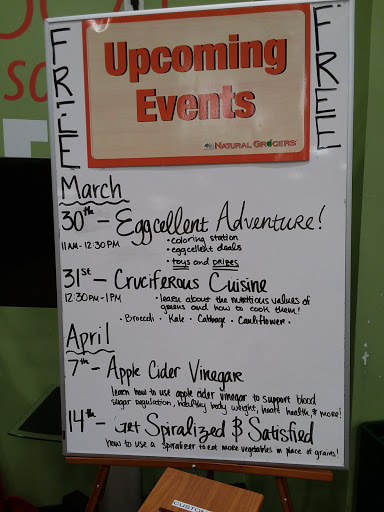 FREE
FREE
Upcoming
Events
NATURAL GROCERS
March
30th - Eggcellent Adventure!
11AM-12:30PM
• coloring station
• eggcellent deals
• toys and prizes
31st - Cruciferous Cuisine
12:30PM-1PM
• learn about the nutritious values of
greens and how to cook them!
• Broccoli • Kale • Cabbage • Cauliflower •
April
7th - Apple Cider Vinegar
learn how to use apple cider vinegar to support blood
sugar regulation, healthy body weight, heart health, & more!
14th - Get Spiralized & Satisfied
how to use a spiralizer to eat more vegetables in place of grains!